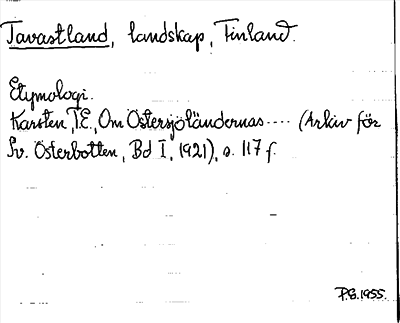 Tavastland, landskap, Finland.
Etymologi.
Karsten, T.E., Om Östersjöländernas .... (Arkiv för
Sv. Österbotten, Bd I, 1921), s. 117 f.
P.B. 1955.